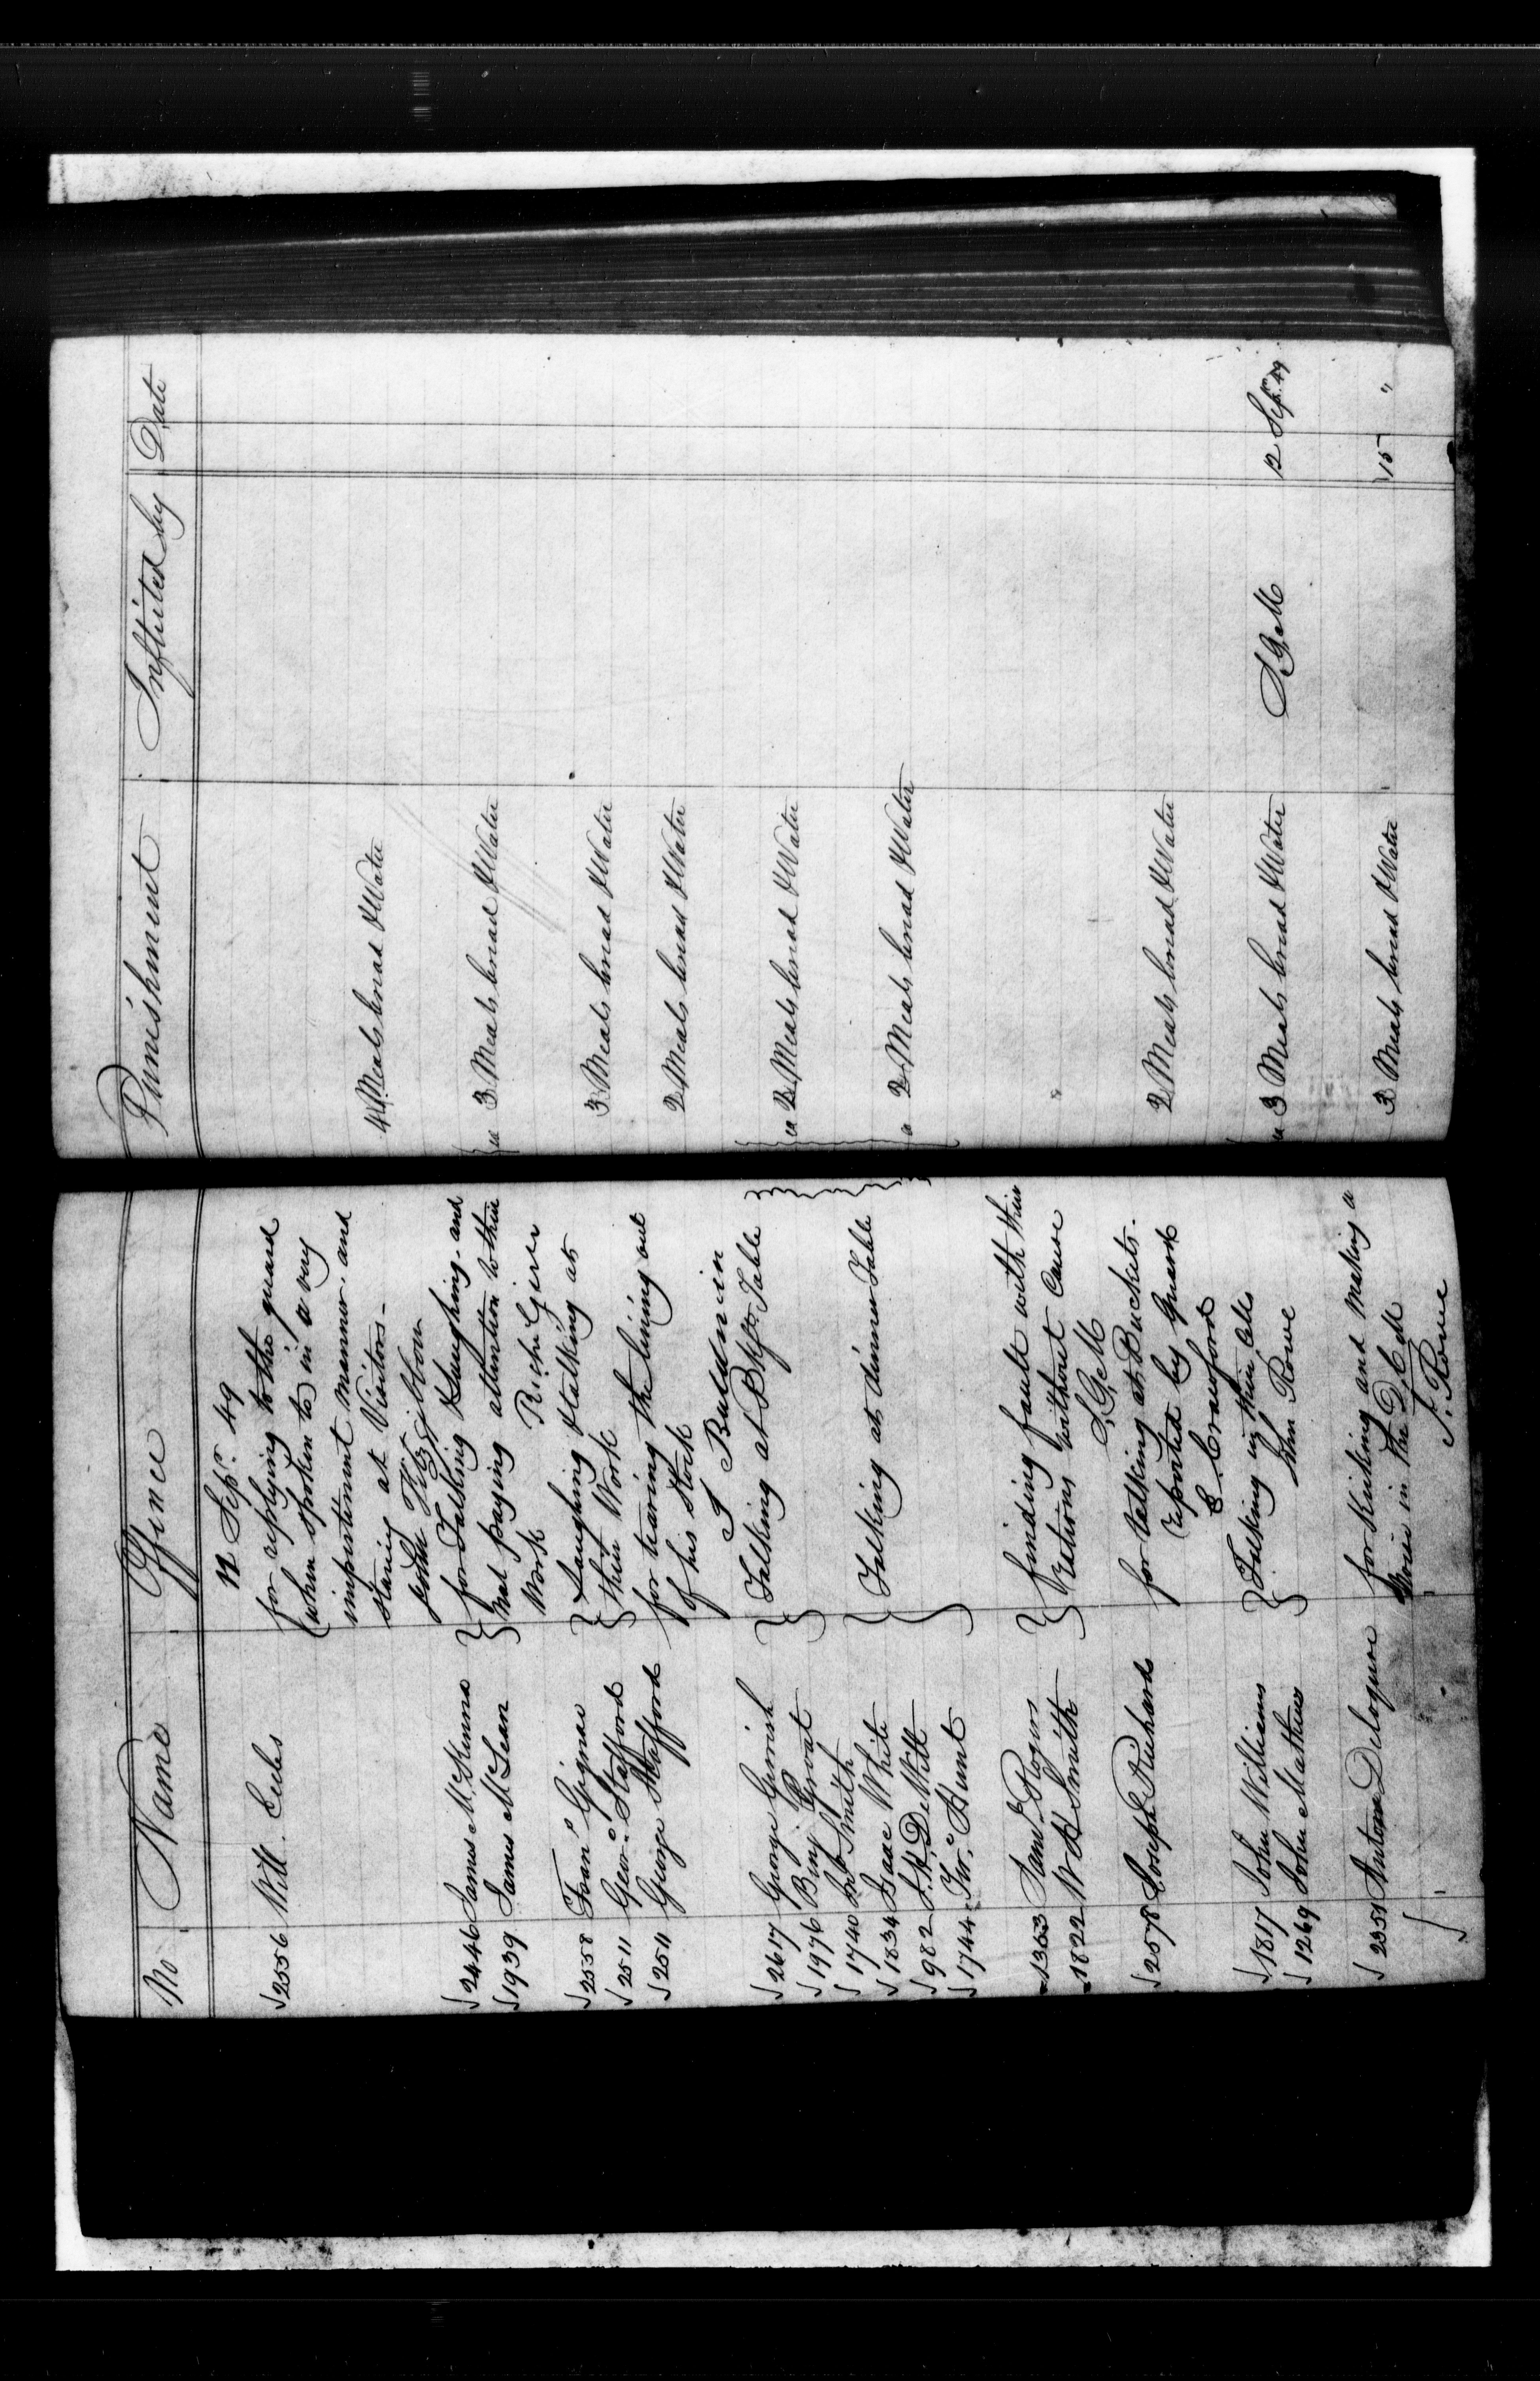 No Name Offence Punishment Inflicted by Date
12 Sepr. 49
2556 Will. Eeles for replying to the guard
when spoken to in a very
impertinent manner and
staring at Visitors - 4 Meals bread & Water
John Fitzgibbon
2446 James McKenna for Talking & Laughing and
1939 James McLean not paying attention to their ea 3 Meals bread & Water
Work Richd Giver
2558 Fran's Gignac Laughing & talking at
2511 Geo. Stafford their Work 3 Meals bread & Water
2511 George Stafford for tearing the lining out
of his Stock 2 Meals bread & Water
J Baldwin
2617 George Gerrish Talking at Bkft Table ea 2 Meals bread & Water
1976 Benj. Groat
1740 Smith
1834 Isaac White Talking at dinner Table
982 DeWitt a 2 Meals bread & Water
1744 Hunt
1353 Saml Rogers finding fault with their
1822 W H Smith Rations without Cause
2578 Joseph Richards for talking at Buckets. 2 Meals bread & Water
reported by Guard
E Crawford
1817 John Williams Talking in their Cells ea 3 Meals bread & Water 12 Sepr. 49
1269 John Mathews John Rowe
2351 Antoine Deloquere for Kicking and making a
Noise in the D. Cell 3 Meals bread & Water 15 "
J. Rowe